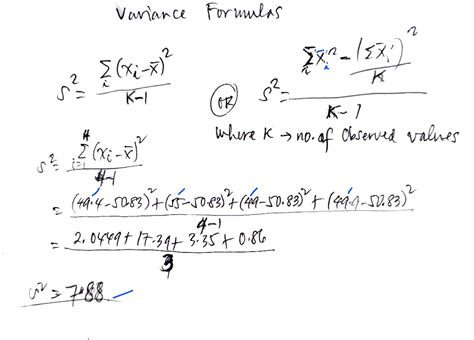 Variance Formulas
s² = Σᵢ(xᵢ-x̄)² / K-1 OR s² = Σᵢx̄ᵢ² - (Σx̄ᵢ)²/K / K-1
where K → no. of Observed values
s² = Σᵢ₌₁⁴(xᵢ-x̄)² / 4-1
= (49.4-50.83)² + (55-50.83)² + (49-50.83)² + (49.9-50.83)² / 4-1
= 2.0449 + 17.39 + 3.35 + 0.86 / 3
s² = 7.88